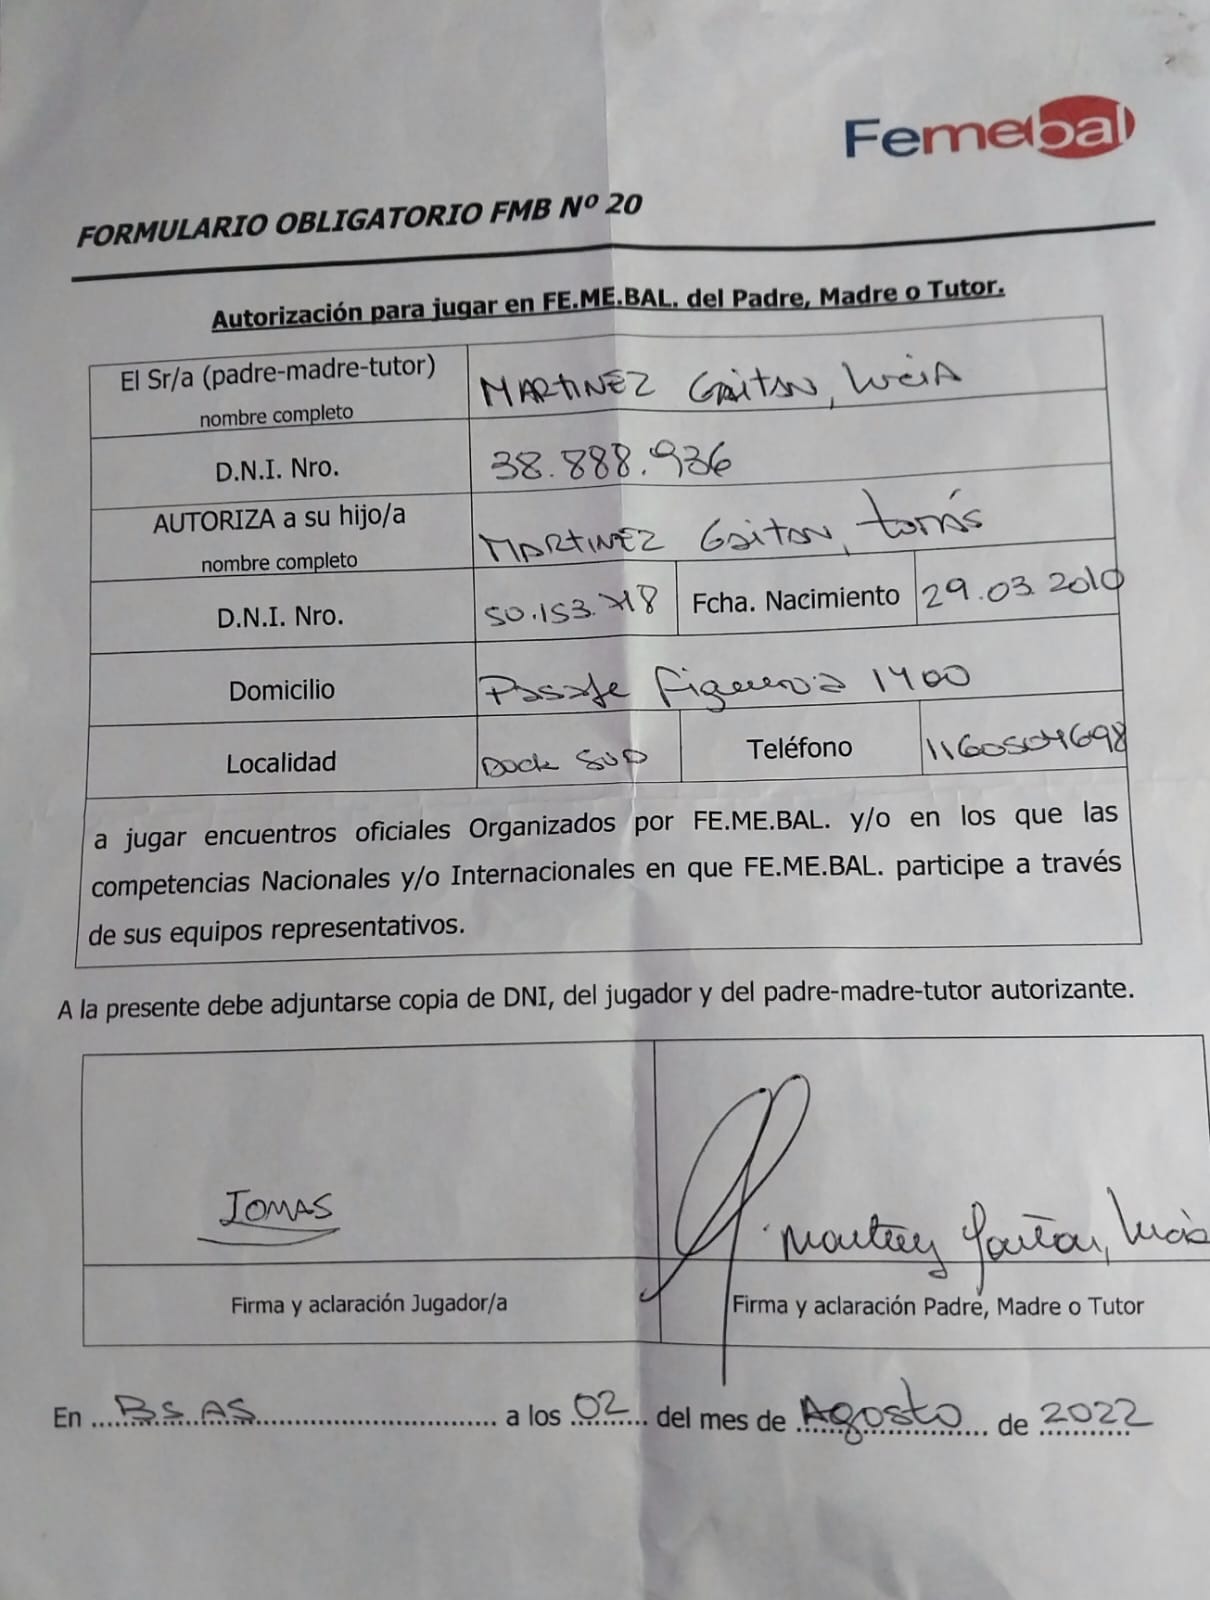 Femebal
FORMULARIO OBLIGATORIO FMB Nº 20
Autorización para jugar en FE.ME.BAL. del Padre, Madre o Tutor.
El Sr/a (padre-madre-tutor) nombre completo MARTINEZ Gaitan, Lucía
D.N.I. Nro. 38.888.936
AUTORIZA a su hijo/a nombre completo MARTINEZ Gaitan, tomás
D.N.I. Nro. 50.153.718 Fcha. Nacimiento 29.03.2010
Domicilio Pasaje Figueroa 1400
Localidad Dock SUD Teléfono 1160504698
a jugar encuentros oficiales Organizados por FE.ME.BAL. y/o en los que las
competencias Nacionales y/o Internacionales en que FE.ME.BAL. participe a través
de sus equipos representativos.
A la presente debe adjuntarse copia de DNI, del jugador y del padre-madre-tutor autorizante.
TOMAS
Martinez Gaitan, Lucia
Firma y aclaración Jugador/a
Firma y aclaración Padre, Madre o Tutor
En BS.AS a los 02 del mes de Agosto de 2022